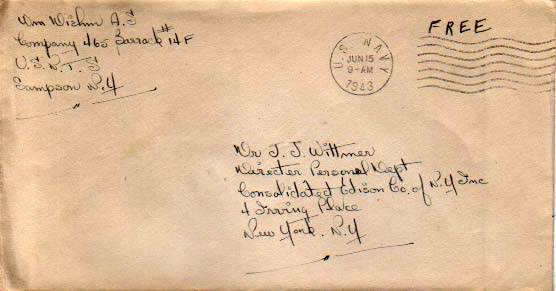 Wm Wishm A.S
Company 465 Barrack # 14 F
U.S.N.T.S
Sampson N.Y
U.S. NAVY
JUN 15
9-AM
1943
FREE
Mr J. J. Wittmer
Director Personal Dept
Consolidated Edison Co. of N.Y Inc
4 Irving Place
New York. N.Y